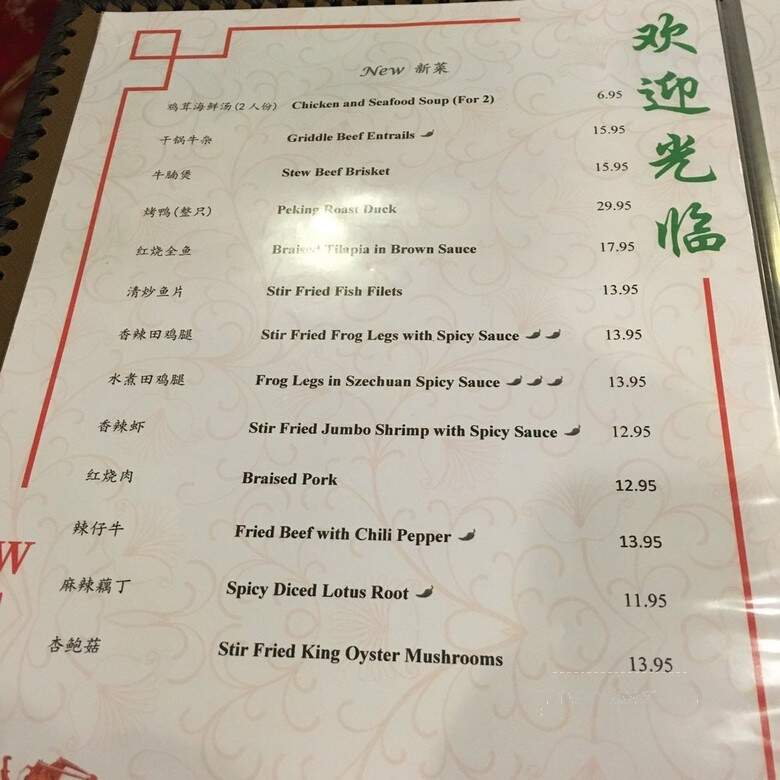 欢迎光临
New 新菜
鸡茸海鲜汤(2人份) Chicken and Seafood Soup (For 2) 6.95
干锅牛杂 Griddle Beef Entrails 15.95
牛腩煲 Stew Beef Brisket 15.95
烤鸭(整只) Peking Roast Duck 29.95
红烧全鱼 Braised Tilapia in Brown Sauce 17.95
清炒鱼片 Stir Fried Fish Filets 13.95
香辣田鸡腿 Stir Fried Frog Legs with Spicy Sauce 13.95
水煮田鸡腿 Frog Legs in Szechuan Spicy Sauce 13.95
香辣虾 Stir Fried Jumbo Shrimp with Spicy Sauce 12.95
红烧肉 Braised Pork 12.95
辣仔牛 Fried Beef with Chili Pepper 13.95
麻辣藕丁 Spicy Diced Lotus Root 11.95
杏鲍菇 Stir Fried King Oyster Mushrooms 13.95